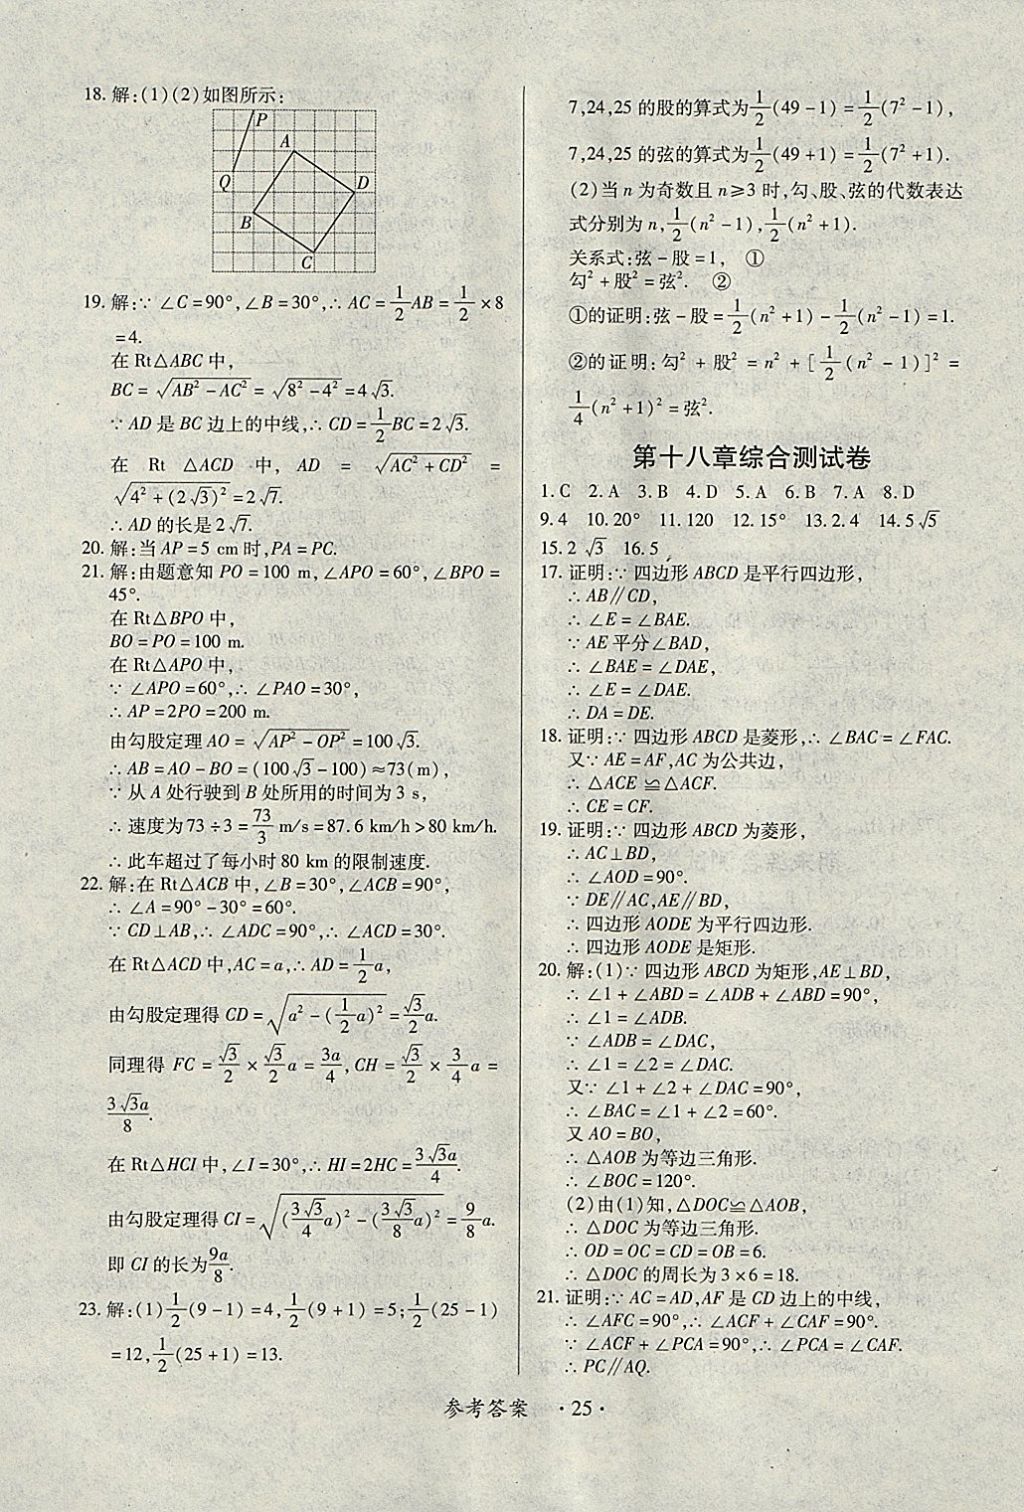 18. 解:(1)(2)如图所示:
P
A
Q
D
B
C
19. 解:∵ ∠C=90°,∠B=30°,∴ AC=1/2AB=1/2×8
=4.
在 Rt△ABC 中,
BC=√(AB²-AC²)=√(8²-4²)=4√3.
∵ AD 是 BC 边上的中线,∴ CD=1/2BC=2√3.
在 Rt △ACD 中, AD = √(AC²+CD²) =
√(4²+(2√3)²)=2√7.
∴ AD 的长是 2√7.
20. 解:当 AP=5 cm 时,PA=PC.
21. 解:由题意知 PO=100 m,∠APO=60°,∠BPO=
45°.
在 Rt△BPO 中,
BO=PO=100 m.
在 Rt△APO 中,
∵ ∠APO=60°,∴ ∠PAO=30°,
∴ AP=2PO=200 m.
由勾股定理 AO=√(AP²-OP²)=100√3.
∴ AB=AO-BO=(100√3-100)≈73(m),
∵ 从 A 处行驶到 B 处所用的时间为 3 s,
∴ 速度为 73÷3=73/3 m/s=87.6 km/h>80 km/h.
∴ 此车超过了每小时 80 km 的限制速度.
22. 解:在 Rt△ACB 中,∠B=30°,∠ACB=90°,
∴ ∠A=90°-30°=60°.
∵ CD⊥AB,∴ ∠ADC=90°,∴ ∠ACD=30°.
在 Rt△ACD 中,AC=a,∴ AD=1/2a,
由勾股定理得 CD=√(a²-(1/2a)²)=√3/2a.
同理得 FC=√3/2×√3/2a=3a/4,CH=√3/2×3/4a=
3√3a/8.
在 Rt△HCI 中,∠I=30°,∴ HI=2HC=3√3a/4.
由勾股定理得 CI=√((3√3/4a)²-(3√3/8a)²)=9/8a.
即 CI 的长为9a/8.
23. 解:(1)1/2(9-1)=4,1/2(9+1)=5;1/2(25-1)
=12,1/2(25+1)=13.
7,24,25 的股的算式为1/2(49-1)=1/2(7²-1),
7,24,25 的弦的算式为1/2(49+1)=1/2(7²+1).
(2)当 n 为奇数且 n≥3 时,勾、股、弦的代数表达
式分别为 n,1/2(n²-1),1/2(n²+1).
关系式:弦-股=1, ①
勾²+股²=弦². ②
①的证明:弦-股=1/2(n²+1)-1/2(n²-1)=1.
②的证明:勾²+股²=n²+[1/2(n²-1)]²=
1/4(n²+1)²=弦².
第十八章综合测试卷
1. C 2. A 3. B 4. D 5. A 6. B 7. A 8. D
9. 4 10. 20° 11. 120 12. 15° 13. 2.4 14. 5√5
15. 2√3 16. 5
17. 证明:∵ 四边形 ABCD 是平行四边形,
∴ AB∥CD,
∴ ∠E=∠BAE.
∵ AE 平分∠BAD,
∴ ∠BAE=∠DAE,
∴ ∠E=∠DAE.
∴ DA=DE.
18. 证明:∵ 四边形 ABCD 是菱形,∴ ∠BAC=∠FAC.
又∵ AE=AF,AC 为公共边,
∴ △ACE≌△ACF.
∴ CE=CF.
19. 证明:∵ 四边形 ABCD 为菱形,
∴ AC⊥BD,
∴ ∠AOD=90°.
∵ DE∥AC,AE∥BD,
∴ 四边形 AODE 为平行四边形.
∴ 四边形 AODE 是矩形.
20. 解:(1)∵ 四边形 ABCD 为矩形,AE⊥BD,
∴ ∠1+∠ABD=∠ADB+∠ABD=90°,
∴ ∠1=∠ADB.
∵ ∠ADB=∠DAC,
∴ ∠1=∠2=∠DAC.
又∵ ∠1+∠2+∠DAC=90°,
∴ ∠BAC=∠1+∠2=60°.
又 AO=BO,
∴ △AOB 为等边三角形.
∴ ∠BOC=120°.
(2)由(1)知,△DOC≌△AOB,
∴ △DOC 为等边三角形.
∴ OD=OC=CD=OB=6.
∴ △DOC 的周长为 3×6=18.
21. 证明:∵ AC=AD,AF 是 CD 边上的中线,
∴ ∠AFC=90°,∴ ∠ACF+∠CAF=90°.
∵ ∠ACF+∠PCA=90°,∴ ∠PCA=∠CAF.
∴ PC∥AQ.
参考答案 ·25·